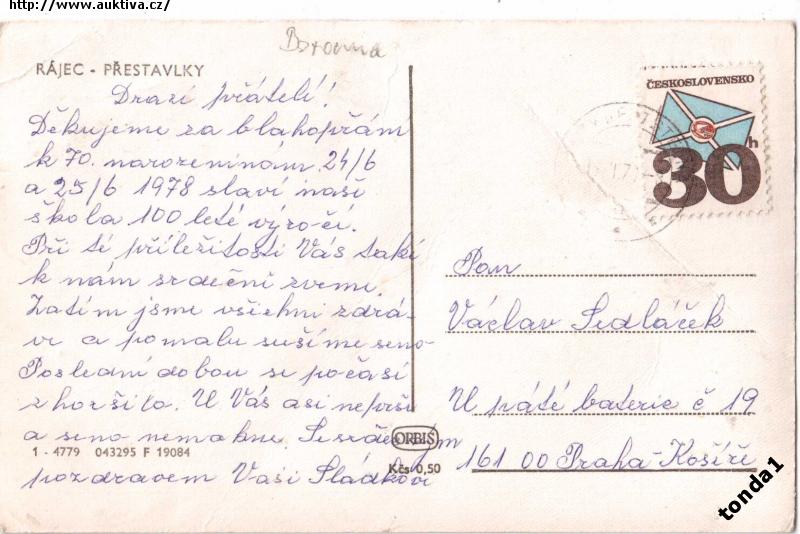 http://www.auktiva.cz/
Borovnia
RÁJEC - PŘESTAVLKY
Drazí přátelé!
Děkujeme za blahopřání
k 70. narozeninám. 24/6
a 25/6 1978 slaví naší
škola 100 leté výročí.
Při té příležitosti Vás také
k nám srdečně zveme.
Zatím jsme všichni zdrá-
vi a pomalu sušíme seno.
Poslední dobou se počasí
zhoršilo. U Vás asi neprší
a seno nemokne. Se srdečným
pozdravem Vaši Sládkovi
1 - 4779 043295 F 19084
ORBIS
Kčs 0,50
ČESKOSLOVENSKO
30h
Pan
Václav Sedláček
U páté baterie č 19
161 00 Praha-Košíře
tonda1